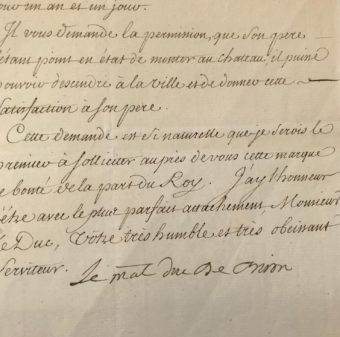 pour un an et un jour.
Il vous demande la permission, que son pere
n'étant point en état de monter au chateau, il puisse
pouvoir descendre à la ville et de donner cette
satisfaction à son pere.
Cette demande est si naturelle que je serois le
premier à solliciter auprès de vous cette marque
de bonté de la part du Roy. J'ay l'honneur
d'être avec le plus parfait attachement, Monsieur
le Duc, Votre tres humble et très obeissant
Serviteur.
Le mal duc De Biron